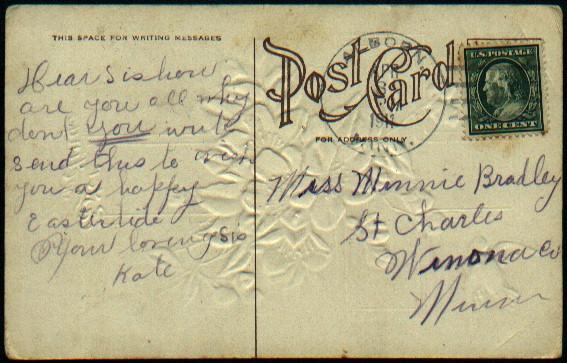 THIS SPACE FOR WRITING MESSAGES
Post Card
FOR ADDRESS ONLY
U.S. POSTAGE
ONE CENT
Dear Sis how
are you all why
dont you write
send this to wish
you a happy
Eastertide
Your loving Sis
Kate
Miss Minnie Bradley
St Charles
Winona Co
Minn